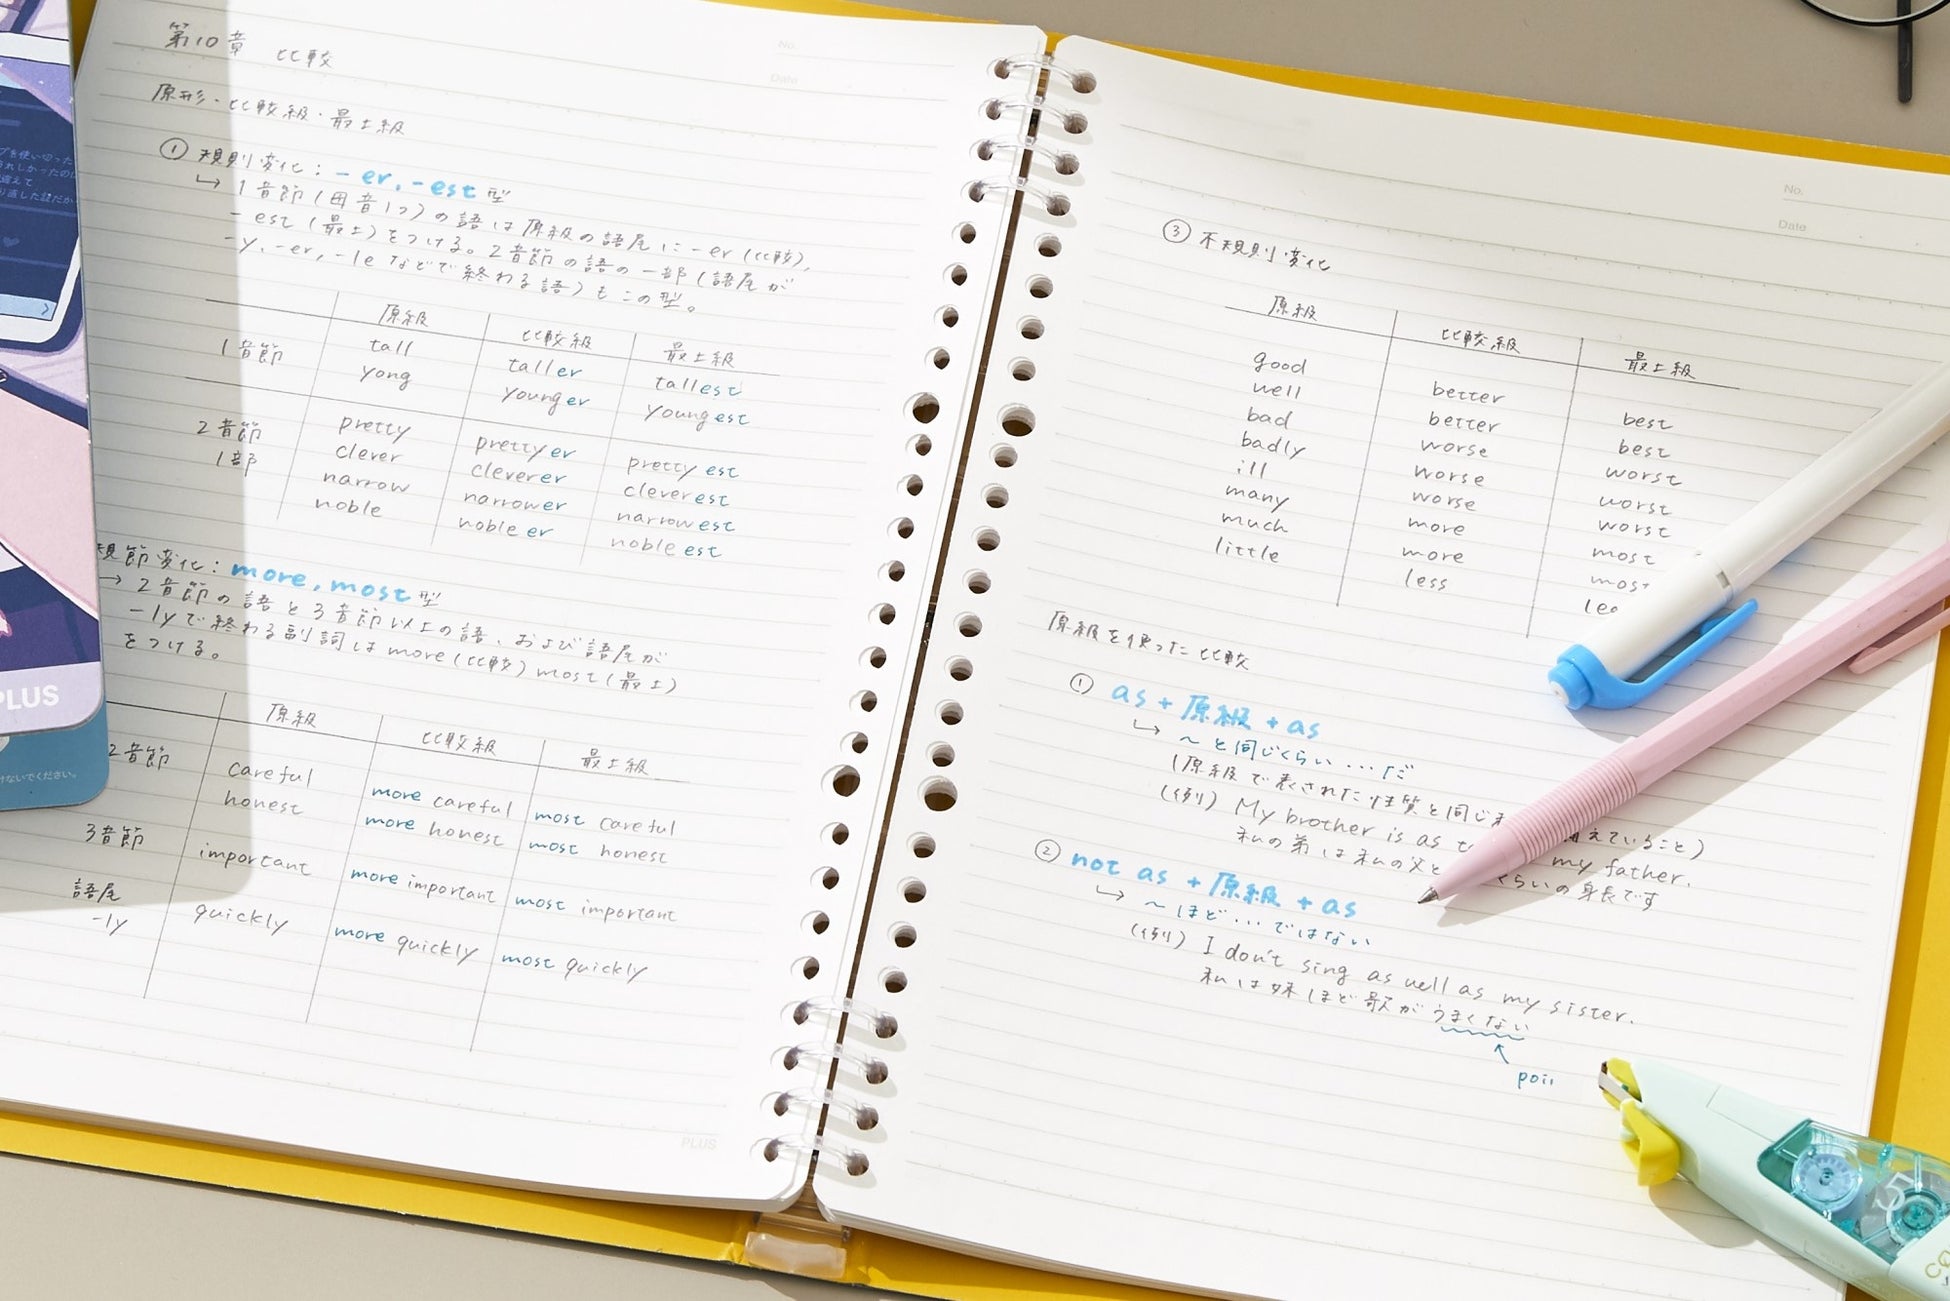 第10章 比較
原形・比較級・最上級
① 規則変化：-er, -est型
↳ 1音節(母音1つ)の語は原級の語尾に-er(比較),
-est(最上)をつける。2音節の語の一部(語尾が
-y, -er, -leなどで終わる語)もこの型。
原級 比較級 最上級
1音節 tall taller tallest
yong younger youngest
2音節 pretty prettyer prettyest
1部 clever cleverer cleverest
narrow narrower narrowest
noble nobleer nobleest
規節変化：more, most型
→ 2音節の語と3音節以上の語、および語尾が
-lyで終わる副詞はmore(比較)most(最上)
をつける。
原級 比較級 最上級
2音節 careful more careful most careful
honest more honest most honest
3音節 important more important most important
語尾 -ly quickly more quickly most quickly
PLUS
No.
Date
③ 不規則変化
原級 比較級 最上級
good better best
well better best
bad worse worst
badly worse worst
ill worse worst
many more most
much more most
little less
原級を使った比較
① as + 原級 + as
↳ 〜と同じくらい…だ
(原級で表された性質と同じ えていること)
(例) My brother is as my father.
私の弟は私の父と くらいの身長です
② not as + 原級 + as
↳ 〜ほど…ではない
(例) I don't sing as well as my sister.
私は妹ほど歌がうまくない
No.
Date
PLUS
けないでください。